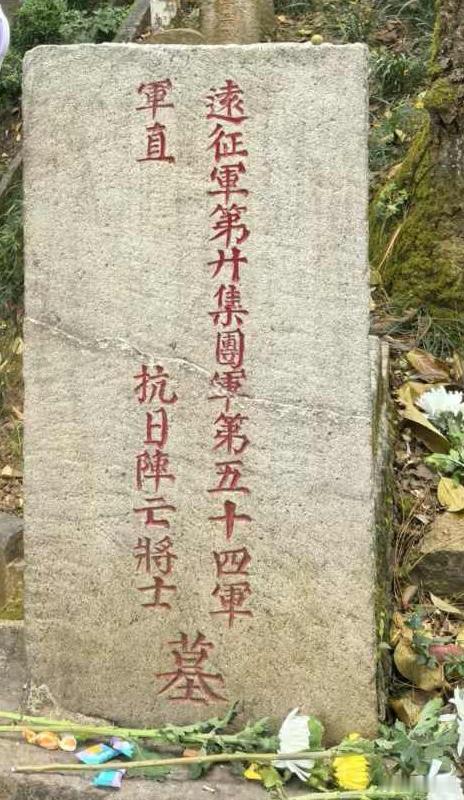 遠征軍第廾集團軍第五十四軍
軍直 抗日陣亡將士
墓